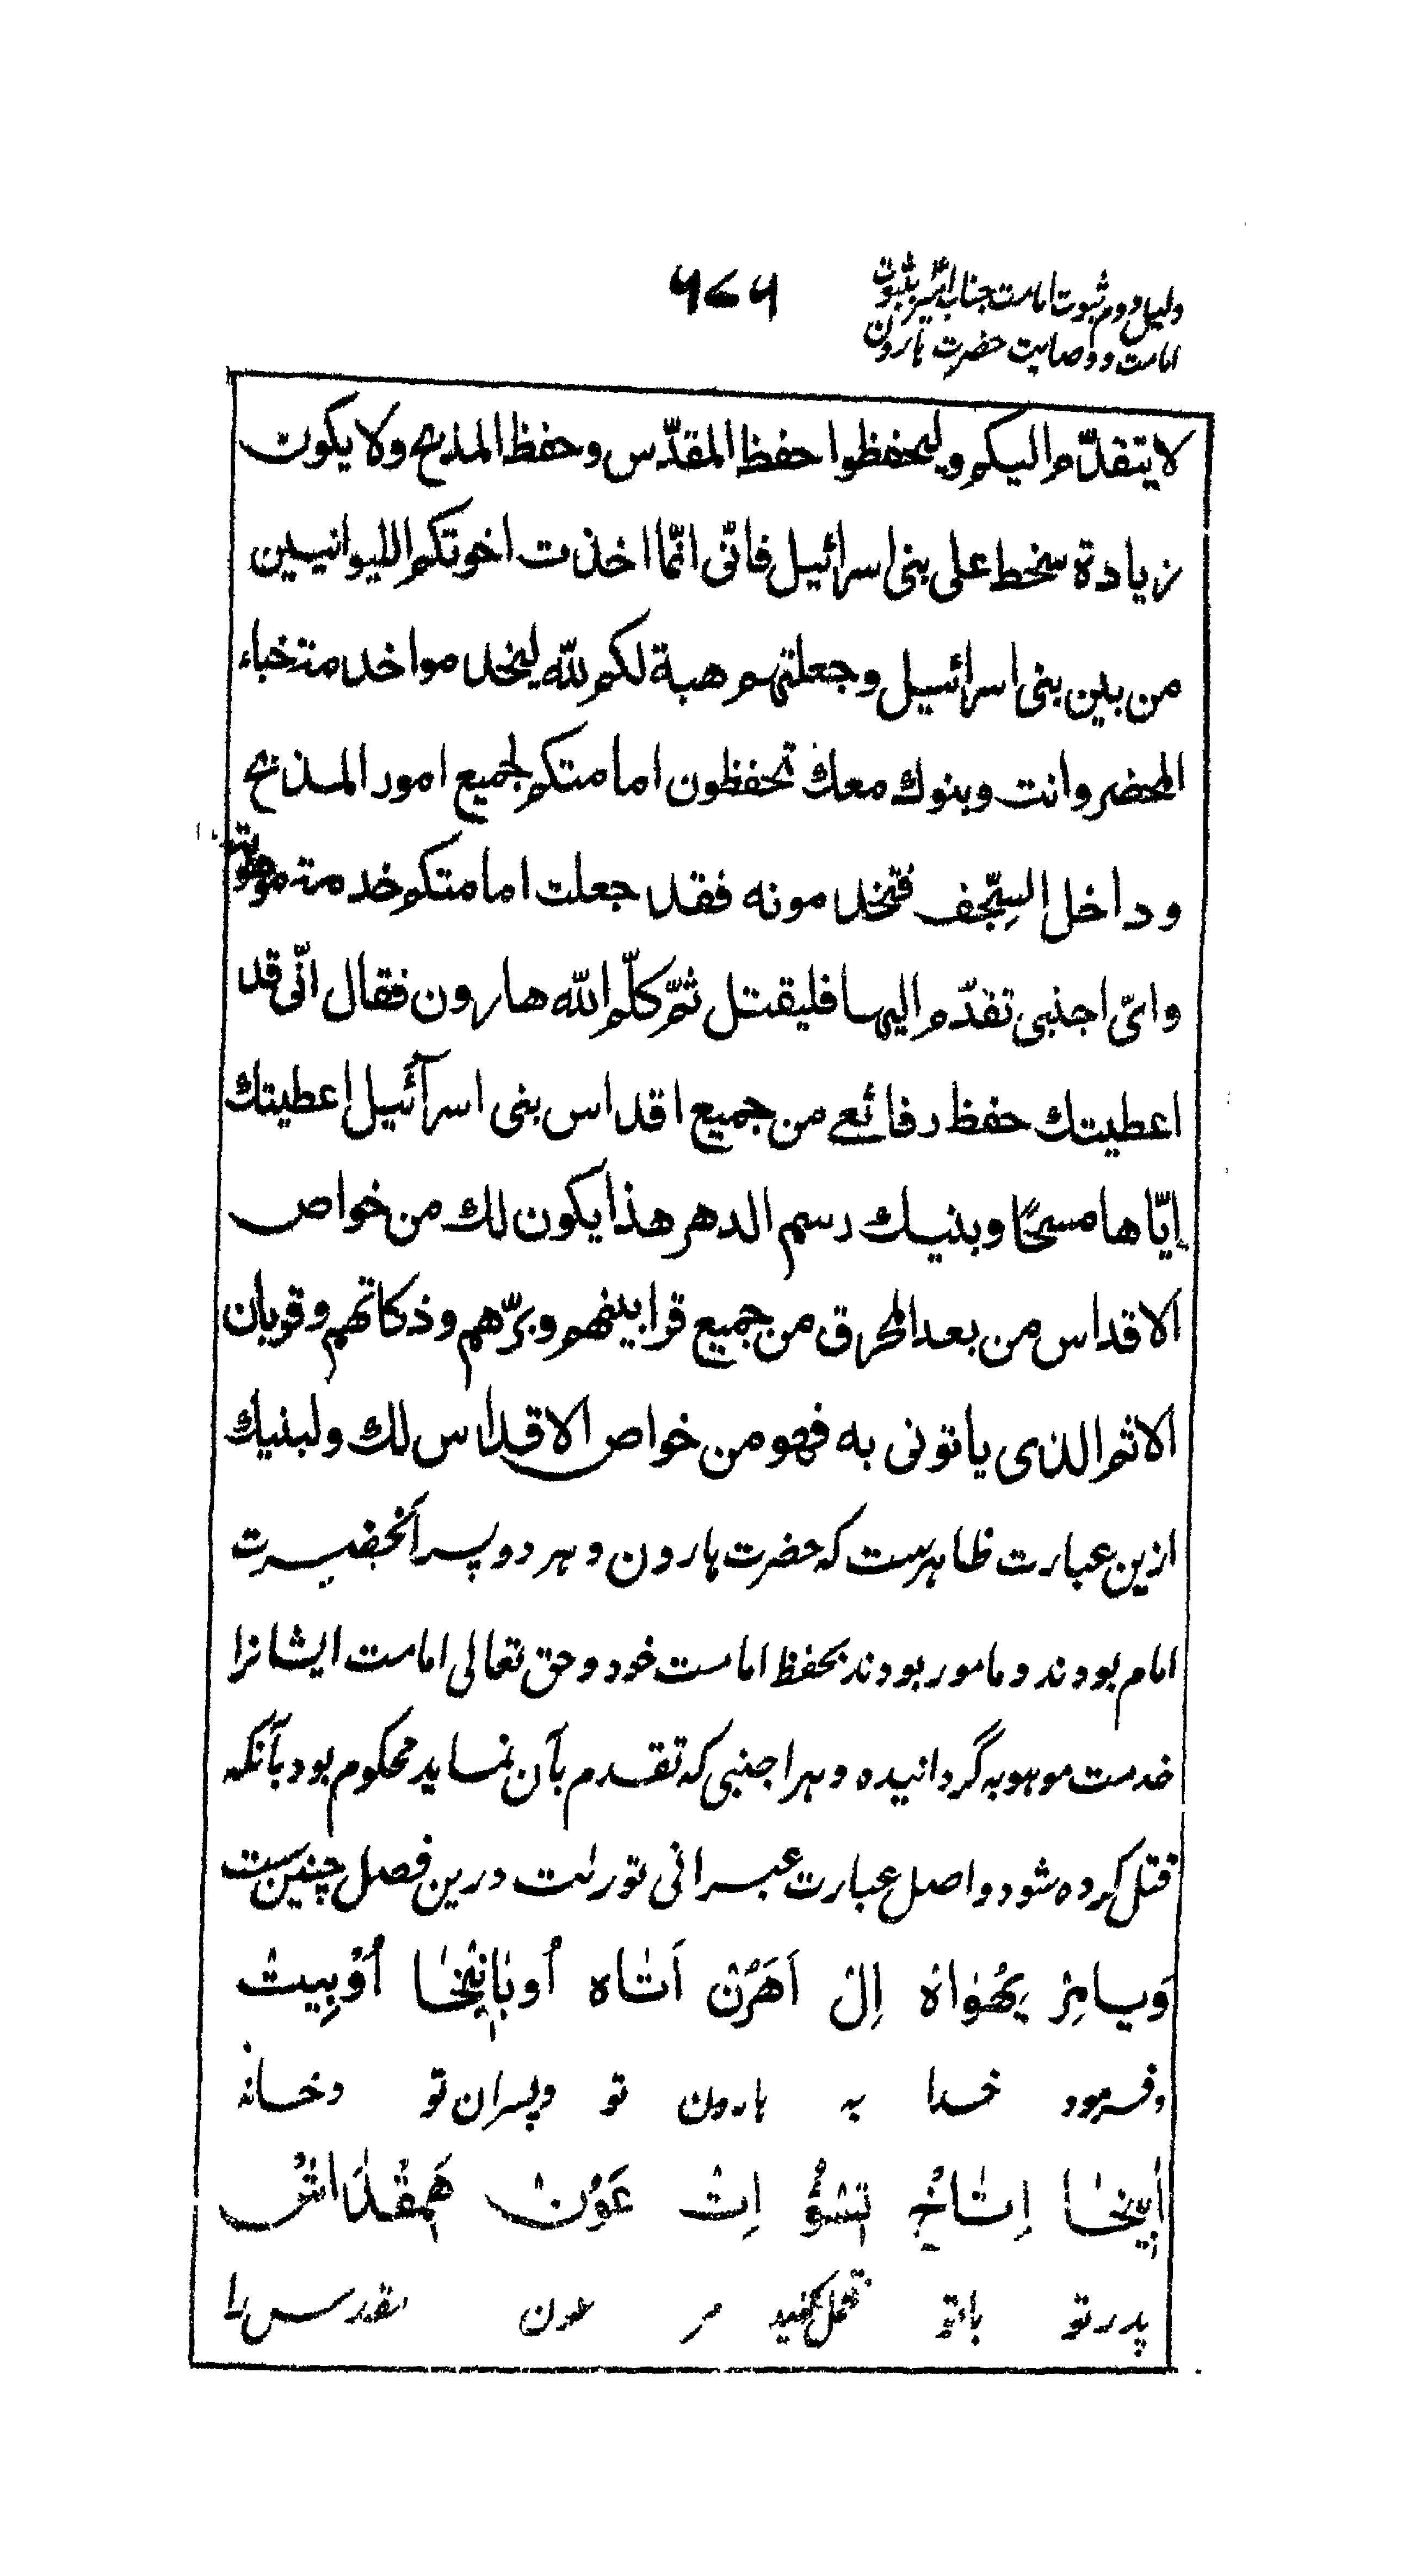 دلیل دوم ثبوت امامت جناب امیر بثبوت
امامت و وصایت حضرت هارون
۶۷۶
لا يتقدّم اليكم وليحفظوا حفظ المقدّس وحفظ المذبح ولا يكون
زيادة سخط على بنى اسرائيل فانّى انّما اخذت اخوتكم الليوانيين
من بين بنى اسرائيل وجعلتهم هبة لكم لله ليخدموا خدمة خباء
المحضر وانت وبنوك معك تحفظون امامتكم لجميع امور المذبح
وداخل السجّف فتخدمونه فقد جعلت امامتكم خدمة موهوبة
واىّ اجنبى تقدّم اليها فليقتل ثمّ كلّم الله هارون فقال انّى قد
اعطيتك حفظ رفائعى من جميع اقداس بنى اسرآئيل اعطيتك
ايّاها مسحًا وبنيك رسم الدهر هذا يكون لك من خواص
الاقداس من بعد المحرق من جميع قرابينهم وبرّهم وذكاتهم وقربان
الاثم الذى ياتونى به فهو من خواص الاقداس لك ولبنيك
ازین عبارت ظاهرست که حضرت هارون و هر دو پسر آنحضرت
امام بودند و مامور بودند بحفظ امامت خود و حق تعالی امامت ایشانرا
خدمت موهوبه گردانیده و هر اجنبی که تقدم بآن نماید محکوم بود بآنکه
قتل کرده شود و اصل عبارت عبرانی تورٮت درین فصل چنین ست
وَيامِرْ يِهْوٰاهْ اِلْ اَهَرُنْ اَتٰاه اُوبٰانِيْخٰا اُوْبِيتْ
وفرمود خدا به هارون تو وپسران تو وخانه
اٰبِيْخٰا اِتٰاخْ تِسْؤُ اِتْ عَوُنْ هَمِقْدٰاشْ
پدر تو باتو تحمل کنید مر عون مقدس را